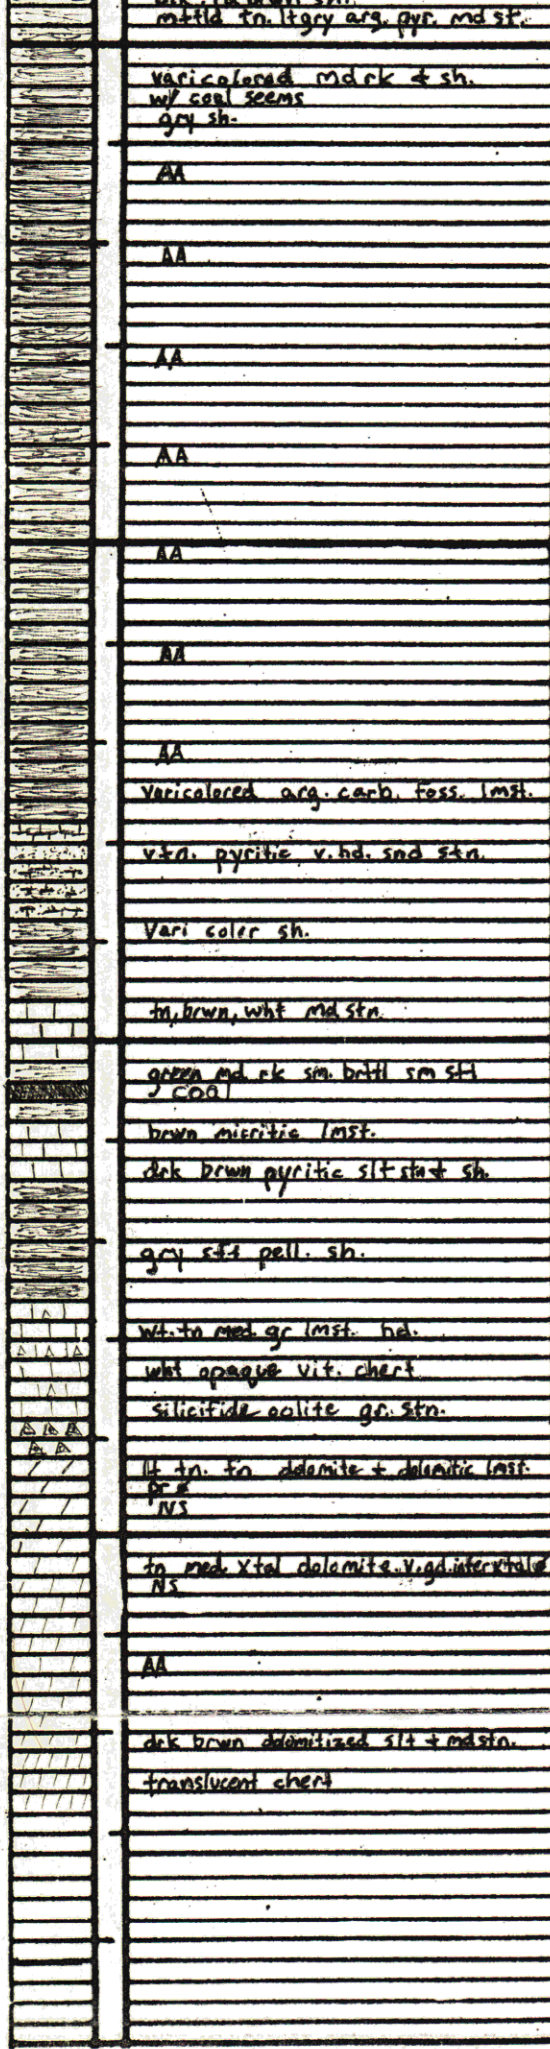 mttld tn. ltgry arg. pyr. md st.
varicolored mdrk & sh.
w/ coal seems
gry sh.
AA
AA
AA
AA
AA
AA
AA
varicolored arg. carb. foss. lmst.
v.tn. pyritic v.hd. snd stn.
Vari color sh.
tn, brwn, wht md stn.
green md rk sm. brttl sm sft
COAl
brwn micritic lmst.
drk brwn pyritic slt stn & sh.
gry sft pell. sh.
wt. tn med. gr lmst. hd.
wht opaque vit. chert
silicifide oolite gr. stn.
lt tn. fn dolomite + dolomitic lmst.
pr ø
NS
tn med. xtal dolomite. v.gd. interxtal ø
NS
AA
drk brwn dolomitized slt + mdstn.
translucent chert